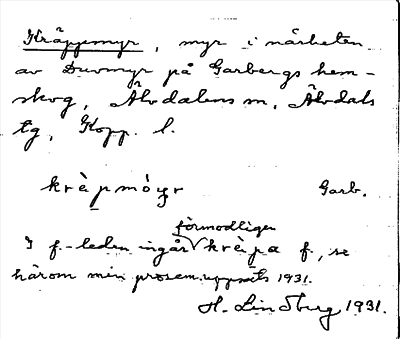 Kräppemyr, myr i närheten
av Duvmyr på Garbergs hem-
skog, Älvdalens sn, Älvdals
tg, Kopp. l.
krὲpmỳr Garb.
förmodligen
I f.-leden ingår krὲpa f., se
härom min prosem.uppsats 1931.
H. Lindberg 1931.